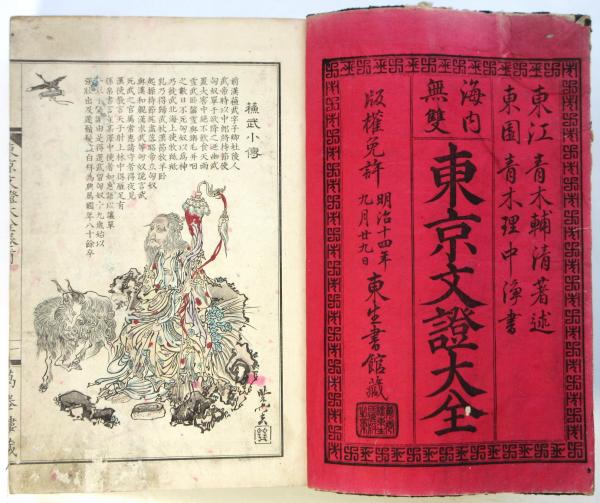 東江 青木輔清著述
東園 青木理中淨書
海内
無雙
東京文證大全
版權免許
明治十四年
九月廿九日
東生書館藏
蘓武小傳
前漢蘓武字子卿杜陵人
武帝時以中郎將持節使
匈奴單于欲降之迺幽武
置大窖中絶不飲食天雨
雪武臥齧雪與旃毛并咽
之數日不死匈奴以爲神
乃徙武北海上使牧羝羝
乳乃得歸武杖漢節牧羊臥
起操持節旄盡落昭帝立匈奴
與漢和親漢求武等匈奴詭言武
死武之官屬常惠請守者得夜見
漢使教言天子射上林中得雁足有
係帛書言在某澤中使者如惠語以讓單
由是得還武留匈奴十九歳始以
強壯出及還鬚髮盡白拜爲典屬國年八十餘卒
東京文證大全卷首
萬卷樓藏